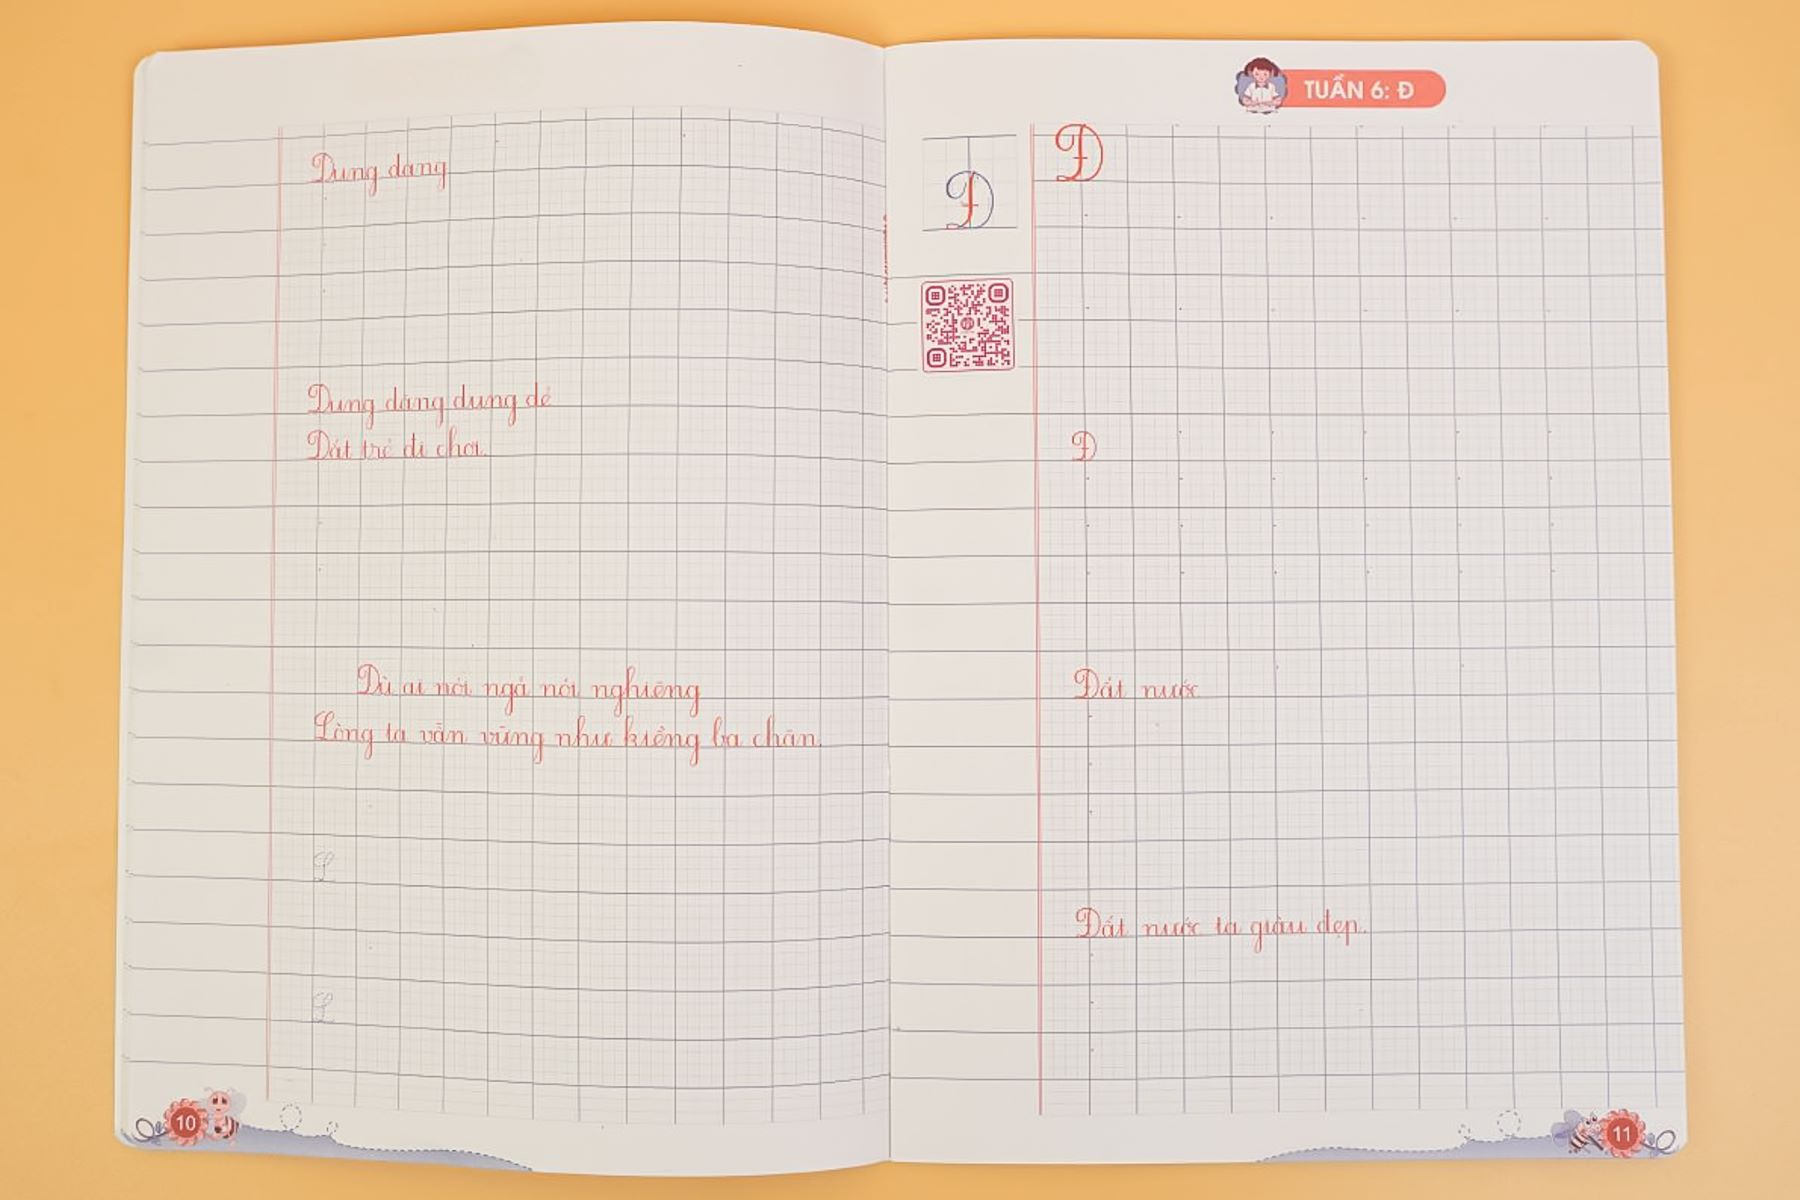 Dung dăng
Dung dăng dung dẻ
Dắt trẻ đi chơi.
Dù ai nói ngả nói nghiêng
Lòng ta vẫn vững như kiềng ba chân.
L
L
10
TUẦN 6: Đ
Đ
Đ
Đ
Đất nước
Đất nước ta giàu đẹp.
11